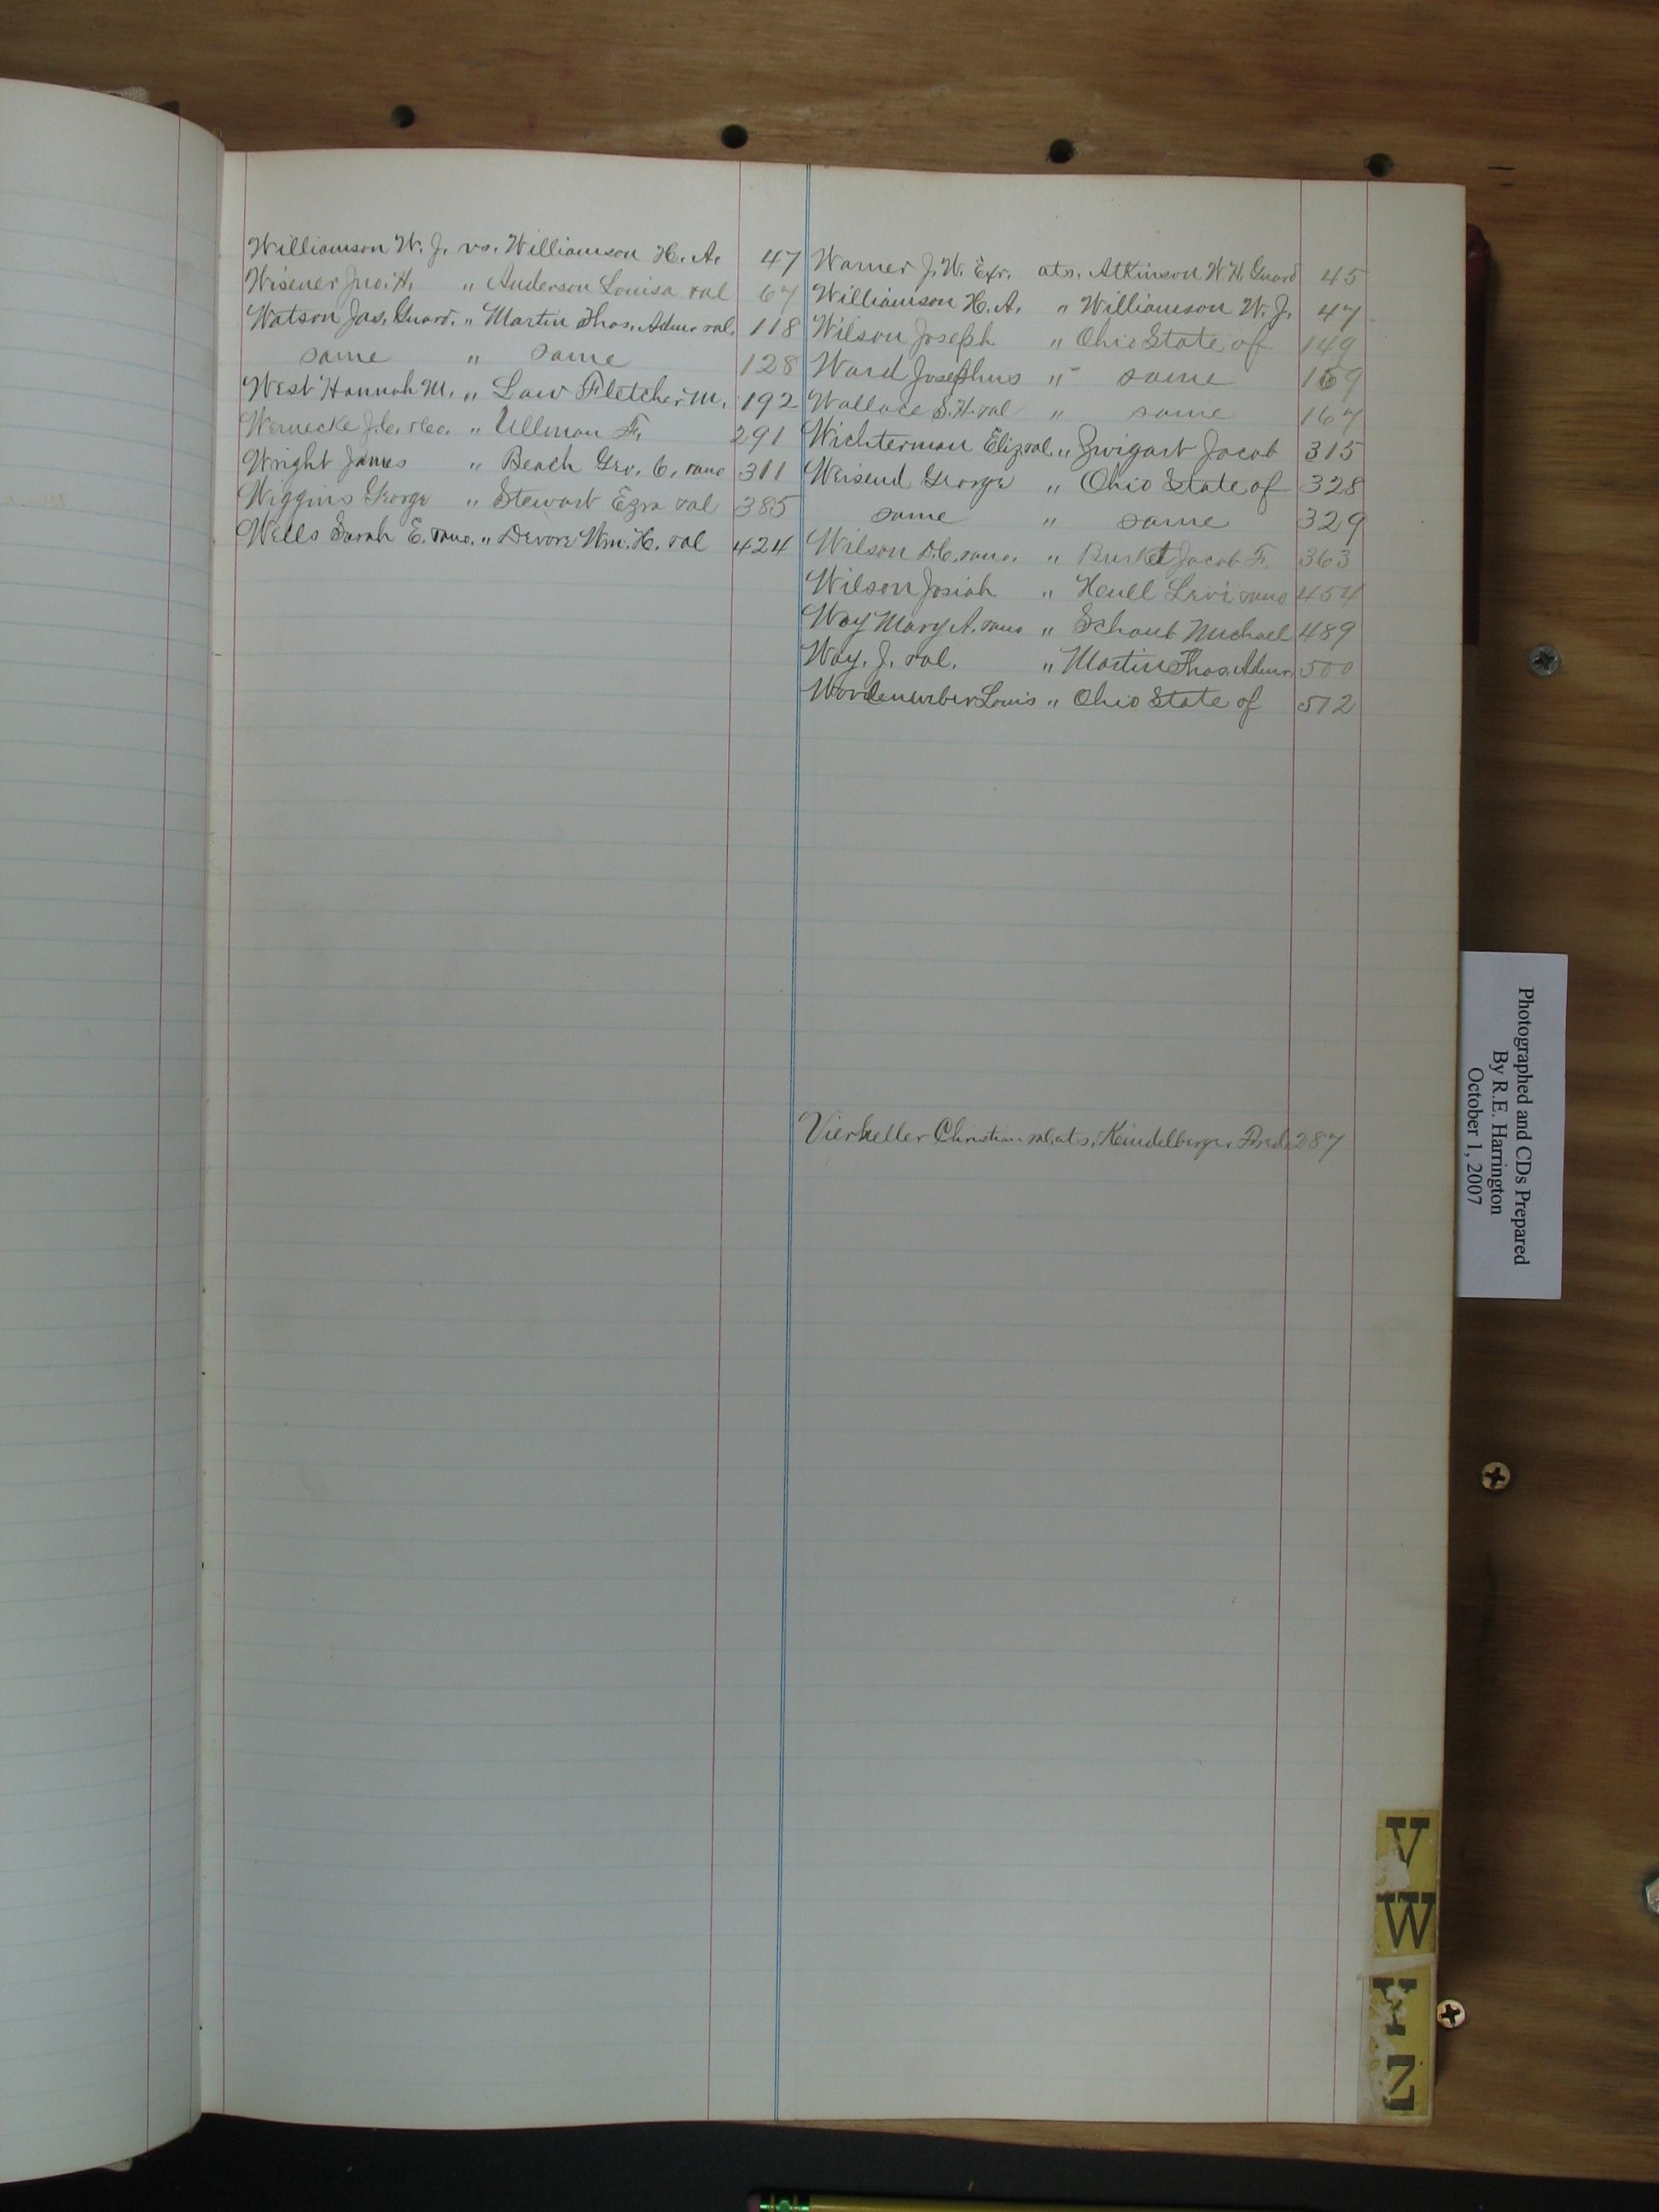 Williamson W. J. vs. Williamson H. A. 47
Wisener Jno. H. " Anderson Louisa et al 67
Watson Jas. Guard. " Martin Thos. Admr et al. 118
same " same 128
West Hannah M. " Law Fletcher M. 192
Wernecke J. C. " Ullman F. 291
Wright James " Beach Geo. C. 311
Wiggins George " Stewart Ezra et al 385
Wells Sarah E. " Devore Wm. H. et al 424
Warner J. W. Exr. ats. Atkinson W. H. Guard 45
Williamson H. A. " Williamson W. J. 47
Wilson Joseph " Ohio State of 149
Ward Josephus " same 159
Wallace S. H. et al " same 167
Wichterman Eliz et al " Zwigart Jacob 315
Weisend George " Ohio State of 328
same " same 329
Wilson D. C. " Burket Jacob F. 363
Wilson Josiah " Henll Levi 454
Way Mary A. " Schaub Michael 489
Way. J. et al. " Martin Thos. Admr. 500
Louis " Ohio State of 512
Vierheller Christian et al. ats. Keindelberger Fred. 287
Photographed and CDs Prepared
By R.E. Harrington
October 1, 2007
V
W
Y
Z